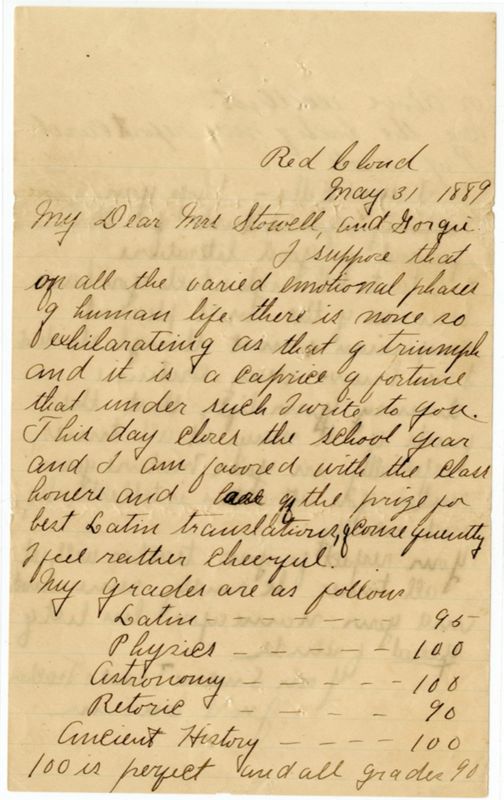 Red Cloud
May 31 1889
My Dear Mrs Stowell, and Gorgie
I suppose that
of all the varied emotional phases
of human life there is none so
exhilarateing as that of triumph
and it is a caprice of fortune
that under such I write to you.
This day closes the school year
and I am favored with the class
honers and the prize for
best Latin translations, consequently
I feel reather cheerful.
My grades are as follows
Latin — — — — 95
Physics — — — — — 100
Astronomy — — — — 100
Retoric — — — — 90
Ancient History — — — — 100
100 is perfect and all grades 90